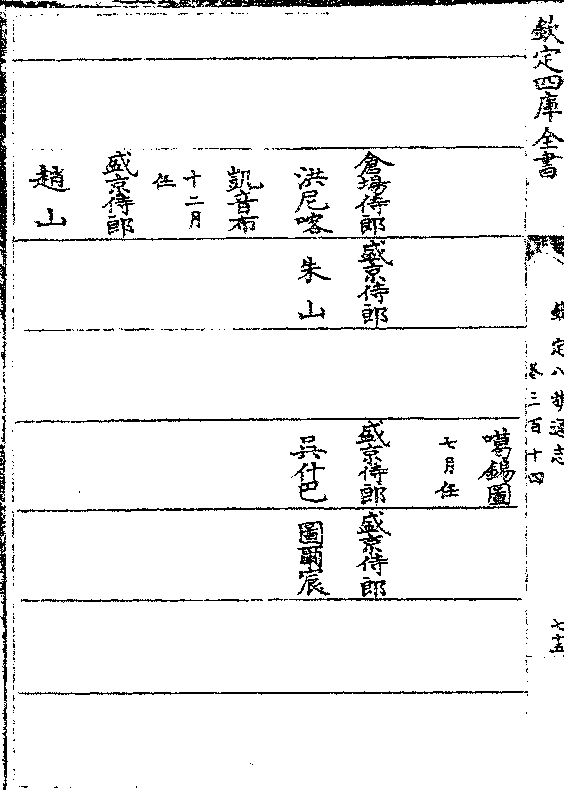 欽定四庫全書
欽定八旗通志
卷三百十四
七十五
倉場侍郎
洪尼喀
凱音布
十二月
任
盛京侍郎
趙山
盛京侍郎
朱山
噶錫圖
七月任
盛京侍郎
吳什巴
盛京侍郎
圖爾宸